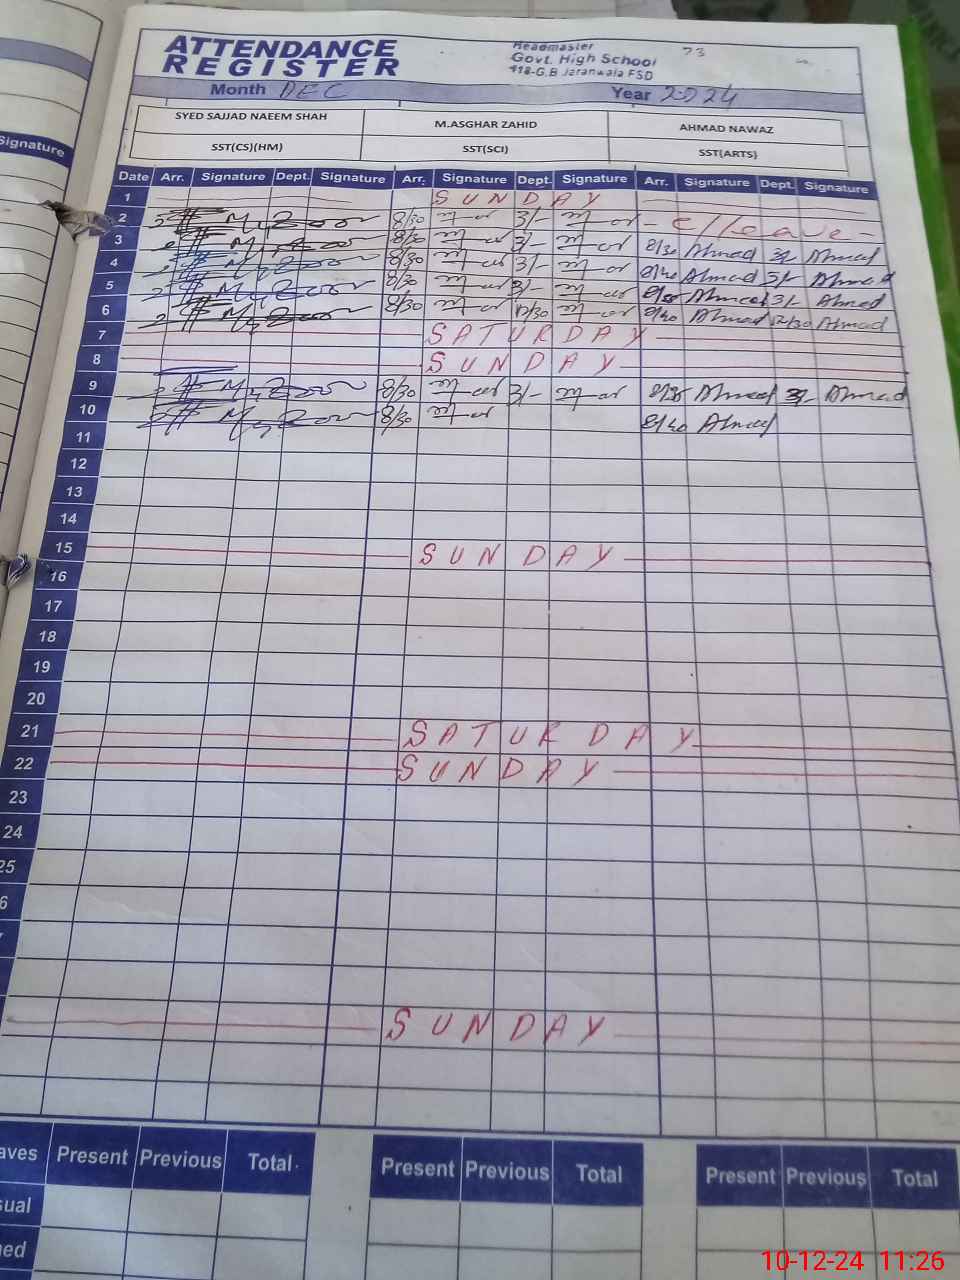 ATTENDANCE
REGISTER
Headmaster
Govt. High School
418-G.B Jaranwala FSD
73
Month DEC Year 2024
SYED SAJJAD NAEEM SHAH M.ASGHAR ZAHID AHMAD NAWAZ
SST(CS)(HM) SST(SCI) SST(ARTS)
Signature
Date Arr. Signature Dept. Signature Arr. Signature Dept. Signature Arr. Signature Dept. Signature
1 SUNDAY
2 8/30 3/- c/leave
3 8/30 3/- 8/30 Ahmad 3/- Ahmad
4 8/30 3/- 8/40 Ahmad 3/- Ahmad
5 8/30 3/- Ahmad 3/- Ahmad
6 8/30 12/30 8/40 Ahmad 12/30 Ahmad
7 SATURDAY
8 SUNDAY
9 8/30 3/- 8/35 Ahmad 3/- Ahmad
10 8/30 8/40 Ahmad
11
12
13
14
15 SUNDAY
16
17
18
19
20
21 SATURDAY
22 SUNDAY
23
24
25
6
SUNDAY
aves Present Previous Total Present Previous Total Present Previous Total
sual
ned
10-12-24 11:26